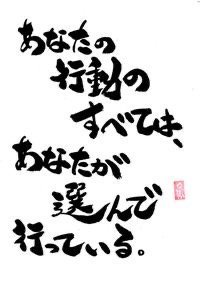 あなたの
行動の
すべては、
あなたが
選んで
行っている。